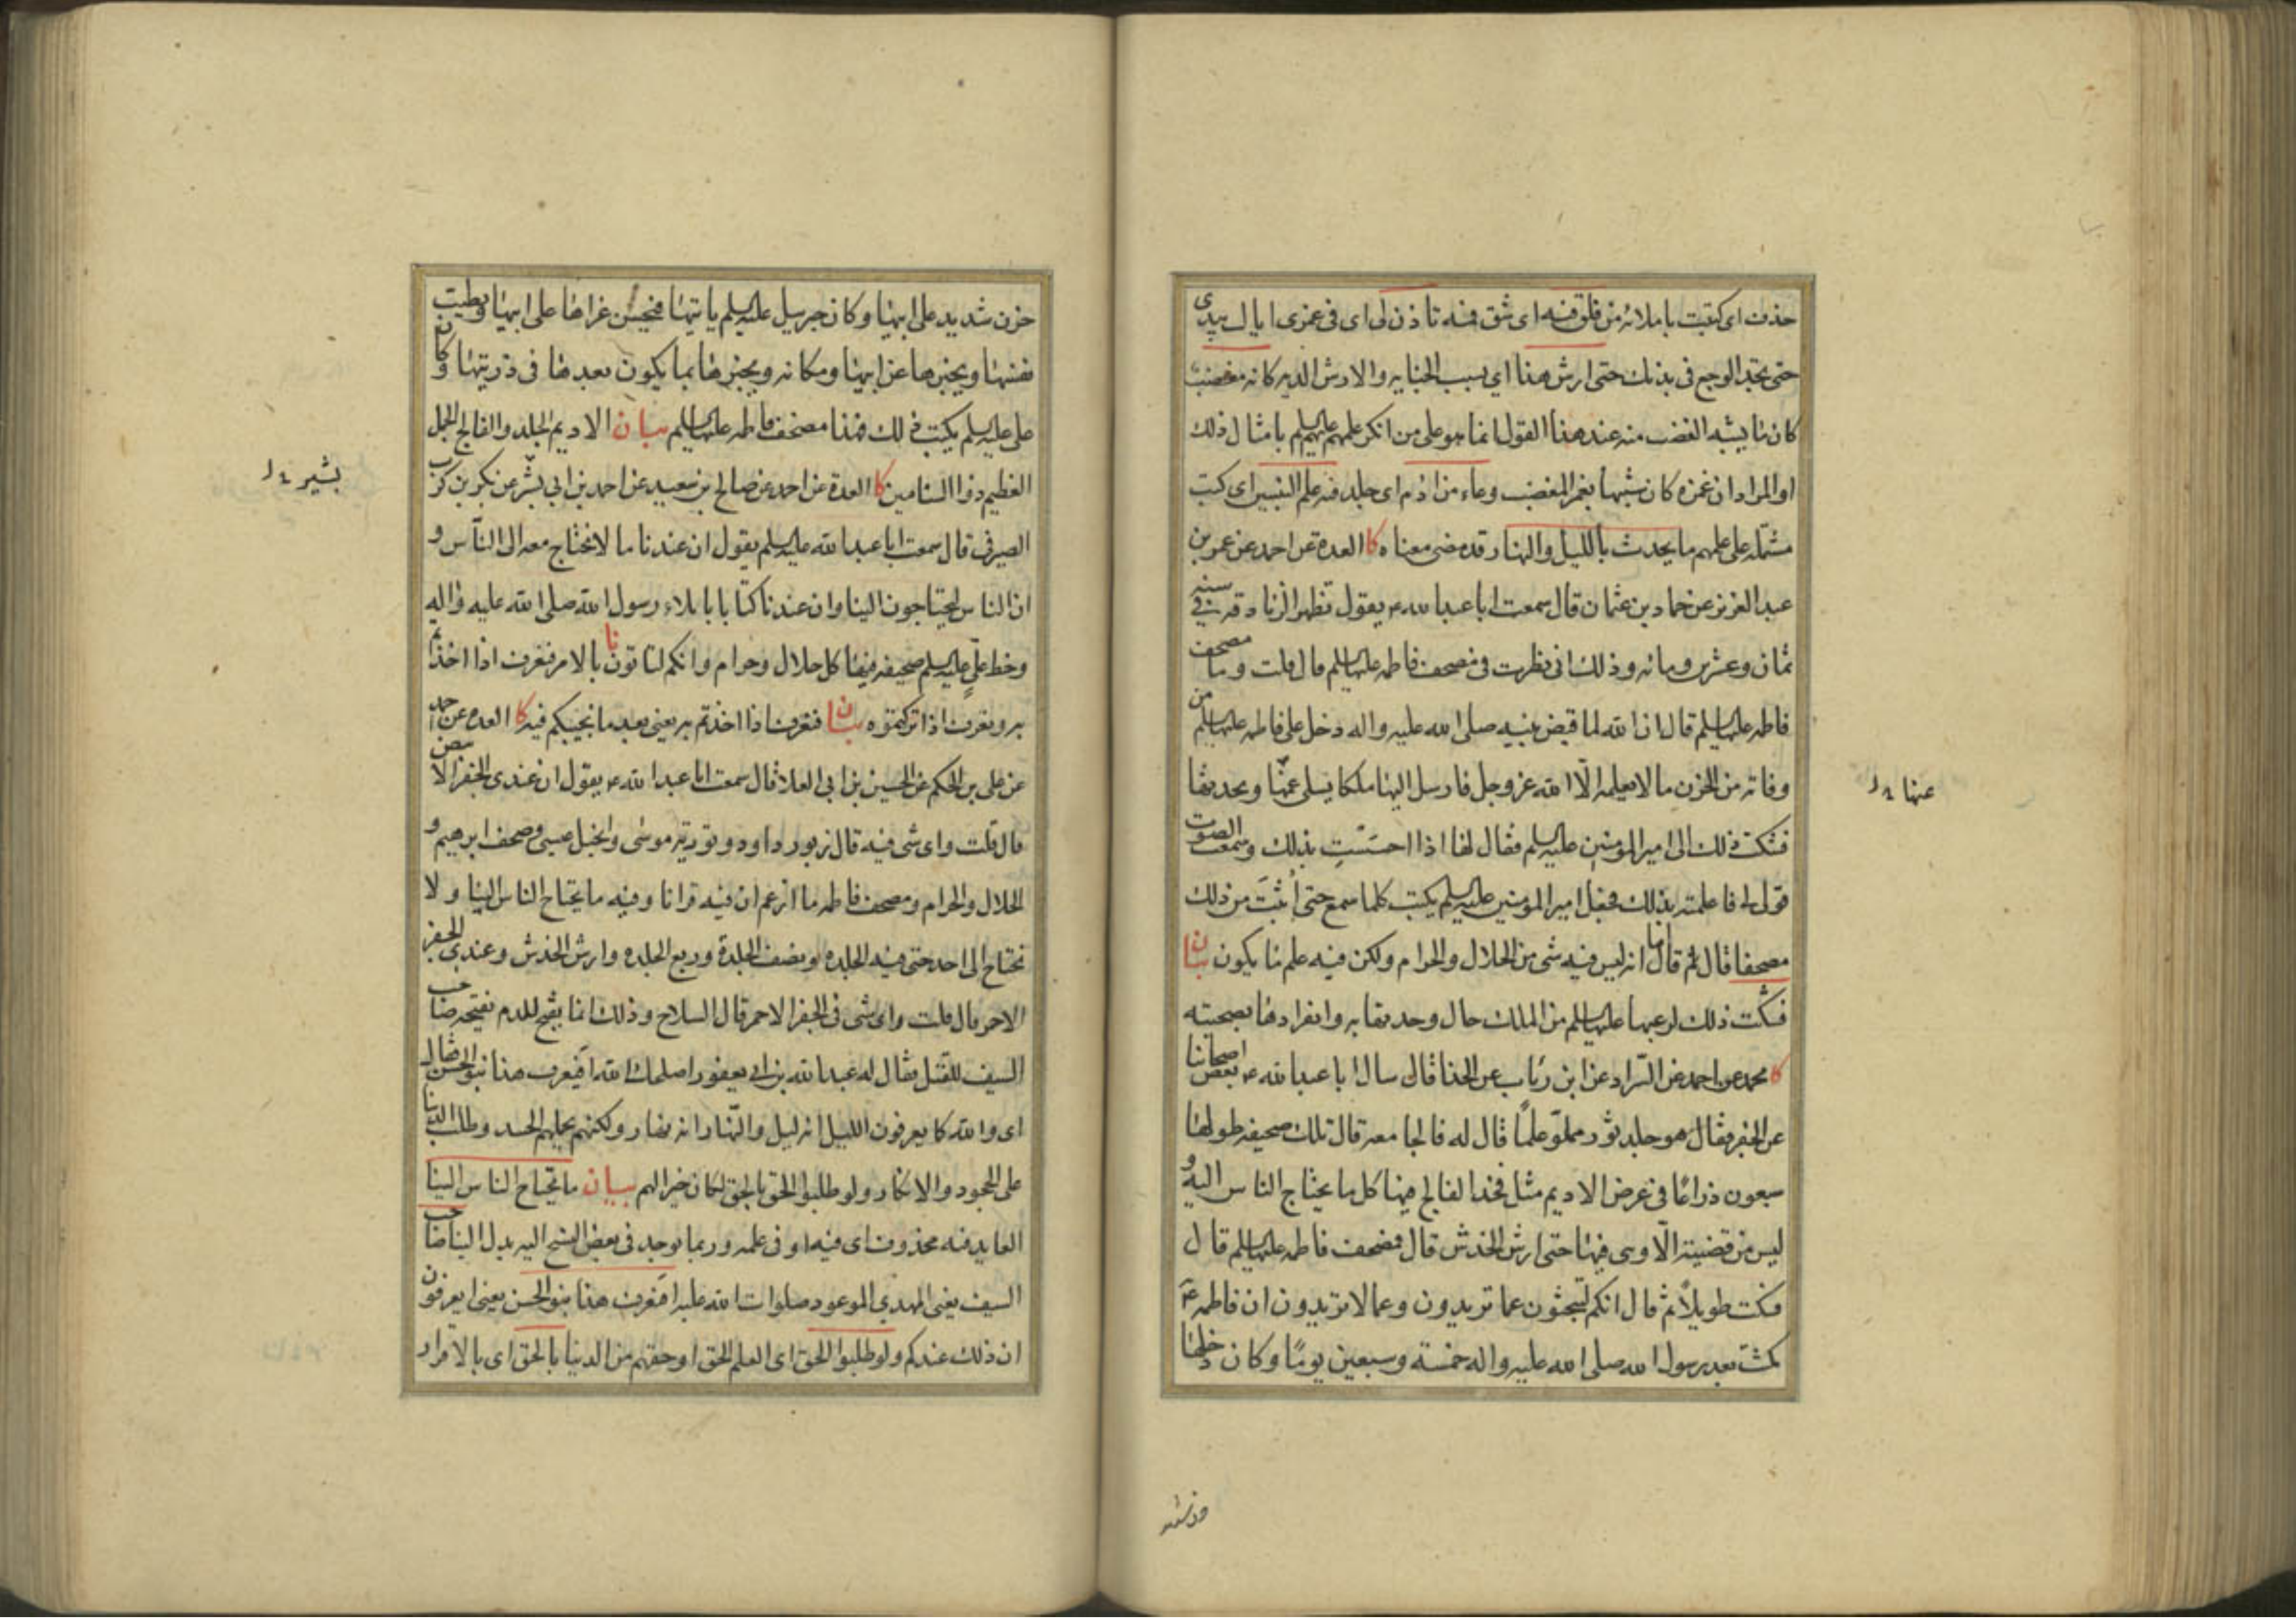 حذف اى كتبت باملائه من فلق فيه اى شق فيه تاذن لى اى فى غمزى اياك بيدى
حتى تجد الوجع فى بدنك حتى ارش هذا اى بسبب الجنايه والارش الديه كانه مغضب
كان ما يشبه الغضب منه عند هذا القول انما هو على من انكر علمهم عليهم السلم بامثال ذلك
او المراد ان غمزه كان شبيها بغمز المغضب وعاء من ادم اى جلد فيه علم النبيين اى كتب
مشتمله على علمهم ما يحدث بالليل والنهار قد مضى معناه كا العدة عن احمد عن عمر بن
عبد العزيز عن حماد بن عثمان قال سمعت ابا عبد الله ع يقول تظهر الزنادقه فى سنه
ثمان وعشرين ومائه وذلك انى نظرت فى مصحف فاطمه عليها السلم قال قلت وما مصحف
فاطمه عليها السلم قال ان الله لما قبض نبيه صلى الله عليه واله دخل على فاطمه عليها السلم من
وفاته من الحزن ما لا يعلمه الّا الله عز وجل فارسل اليها ملكا يسلى عنّها ويحدثها
فشكت ذلك الى امير المؤمنين عليه السلم فقال لها اذا احسَسْتِ بذلك وسمعت الصوت
قولى لى فاعلمته بذلك فجعل امير المؤمنين عليه السلم يكتب كلما سمع حتى اُثبتَ من ذلك
مصحفا قال ثم قال اما انه ليس فيه شى من الحلال والحرام ولكن فيه علم ما يكون بيان
فشكت ذلك لرعبها عليها السلم من الملك حال وحدتها به وانفرادها بصحبته
كا محمد عن احمد عن السّراد عن ابن رئاب عن الحذا قال سال ابا عبد الله ع بعض اصحابنا
عن الجفر فقال هو جلد ثور مملوّ علمًا قال له فالجامعه قال تلك صحيفه طولها
سبعون ذراعًا فى عرض الاديم مثل فخذ الفالج فيها كل ما يحتاج الناس اليه و
ليس من قضيته الّا وهى فيها حتى ارش الخدش قال فمصحف فاطمه عليها السلم قال
فسكت طويلًا ثم قال انكم لتبحثون عما تريدون وعما لا تريدون ان فاطمه ع
مكثت بعد رسول الله صلى الله عليه واله خمسة وسبعين يومًا وكان دخلها
عنها
حزن شديد على ابيها وكان جبرئيل عليه السلم ياتيها فيحسن عزاها على ابيها ويطيب
نفسها ويخبرها عن ابيها ومكانه ويخبرها بما يكون بعدها فى ذريتها وكان
على عليه السلم يكتب ذلك فهذا مصحف فاطمه عليها السلم بيان الاديم الجلد والفالج الجمل
العظيم ذو السنامين كا العدة عن احمد عن صالح بن سعيد عن احمد بن ابى بشر عن بكر بن كرب
الصيرفى قال سمعت ابا عبد الله عليه السلم يقول ان عندنا ما لا نحتاج معه الى النّاس و
ان الناس ليحتاجون الينا وان عندنا كتابا باملاء رسول الله صلى الله عليه واله
وخط علىٍ عليه السلم صحيفه فيها كل حلال وحرام وانكم لتاتونا بالامر فنعرف اذا اخذتم
به ونعرف اذا تركتموه بيان فنعرف اذا اخذتم به يعنى بعد ما نجيبكم فيه كا العده عن احمد
عن على بن الحكم عن الحسين بن ابى العلا قال سمعت ابا عبد الله ع يقول ان عندى الجفر الابيض
قال قلت واى شى فيه قال زبور داود وتورية موسى وانجيل عيسى وصحف ابرهيم و
الحلال والحرام ومصحف فاطمه ما ازعم ان فيه قرانا وفيه ما يحتاج الناس الينا ولا
نحتاج الى احد حتى فيه الجلده ونصف الجلدة وربع الجلده وارش الخدش وعندى الجفر
الاحمر قال قلت واى شى فى الجفر الاحمر قال السلاح وذلك انما يفتح للدم يفتحه صاحب
السيف للقتل فقال له عبد الله بن ابى يعفور اصلحك الله ايعرف هذا بنو الحسن فقال
اى والله كما يعرفون الليل انه ليل والنّهار انه نهار ولكنهم يحملهم الحسد وطلب الدنيا
على الجحود والانكار ولو طلبوا الحق بالحق لكان خيرا لهم بيان ما يحتاج الناس الينا
العايد فيه محذوف اى فيه او فى علمه وربما يوجد فى بعض النسخ اليه بدل الينا صاحب
السيف يعنى المهدى الموعود صلوات الله عليه ايعرف هذا بنو الحسن يعنى ايعرفون
ان ذلك عندكم ولو طلبوا الحق اى العلم الحق او حقهم من الدنيا بالحق اى بالاقرار
بشير